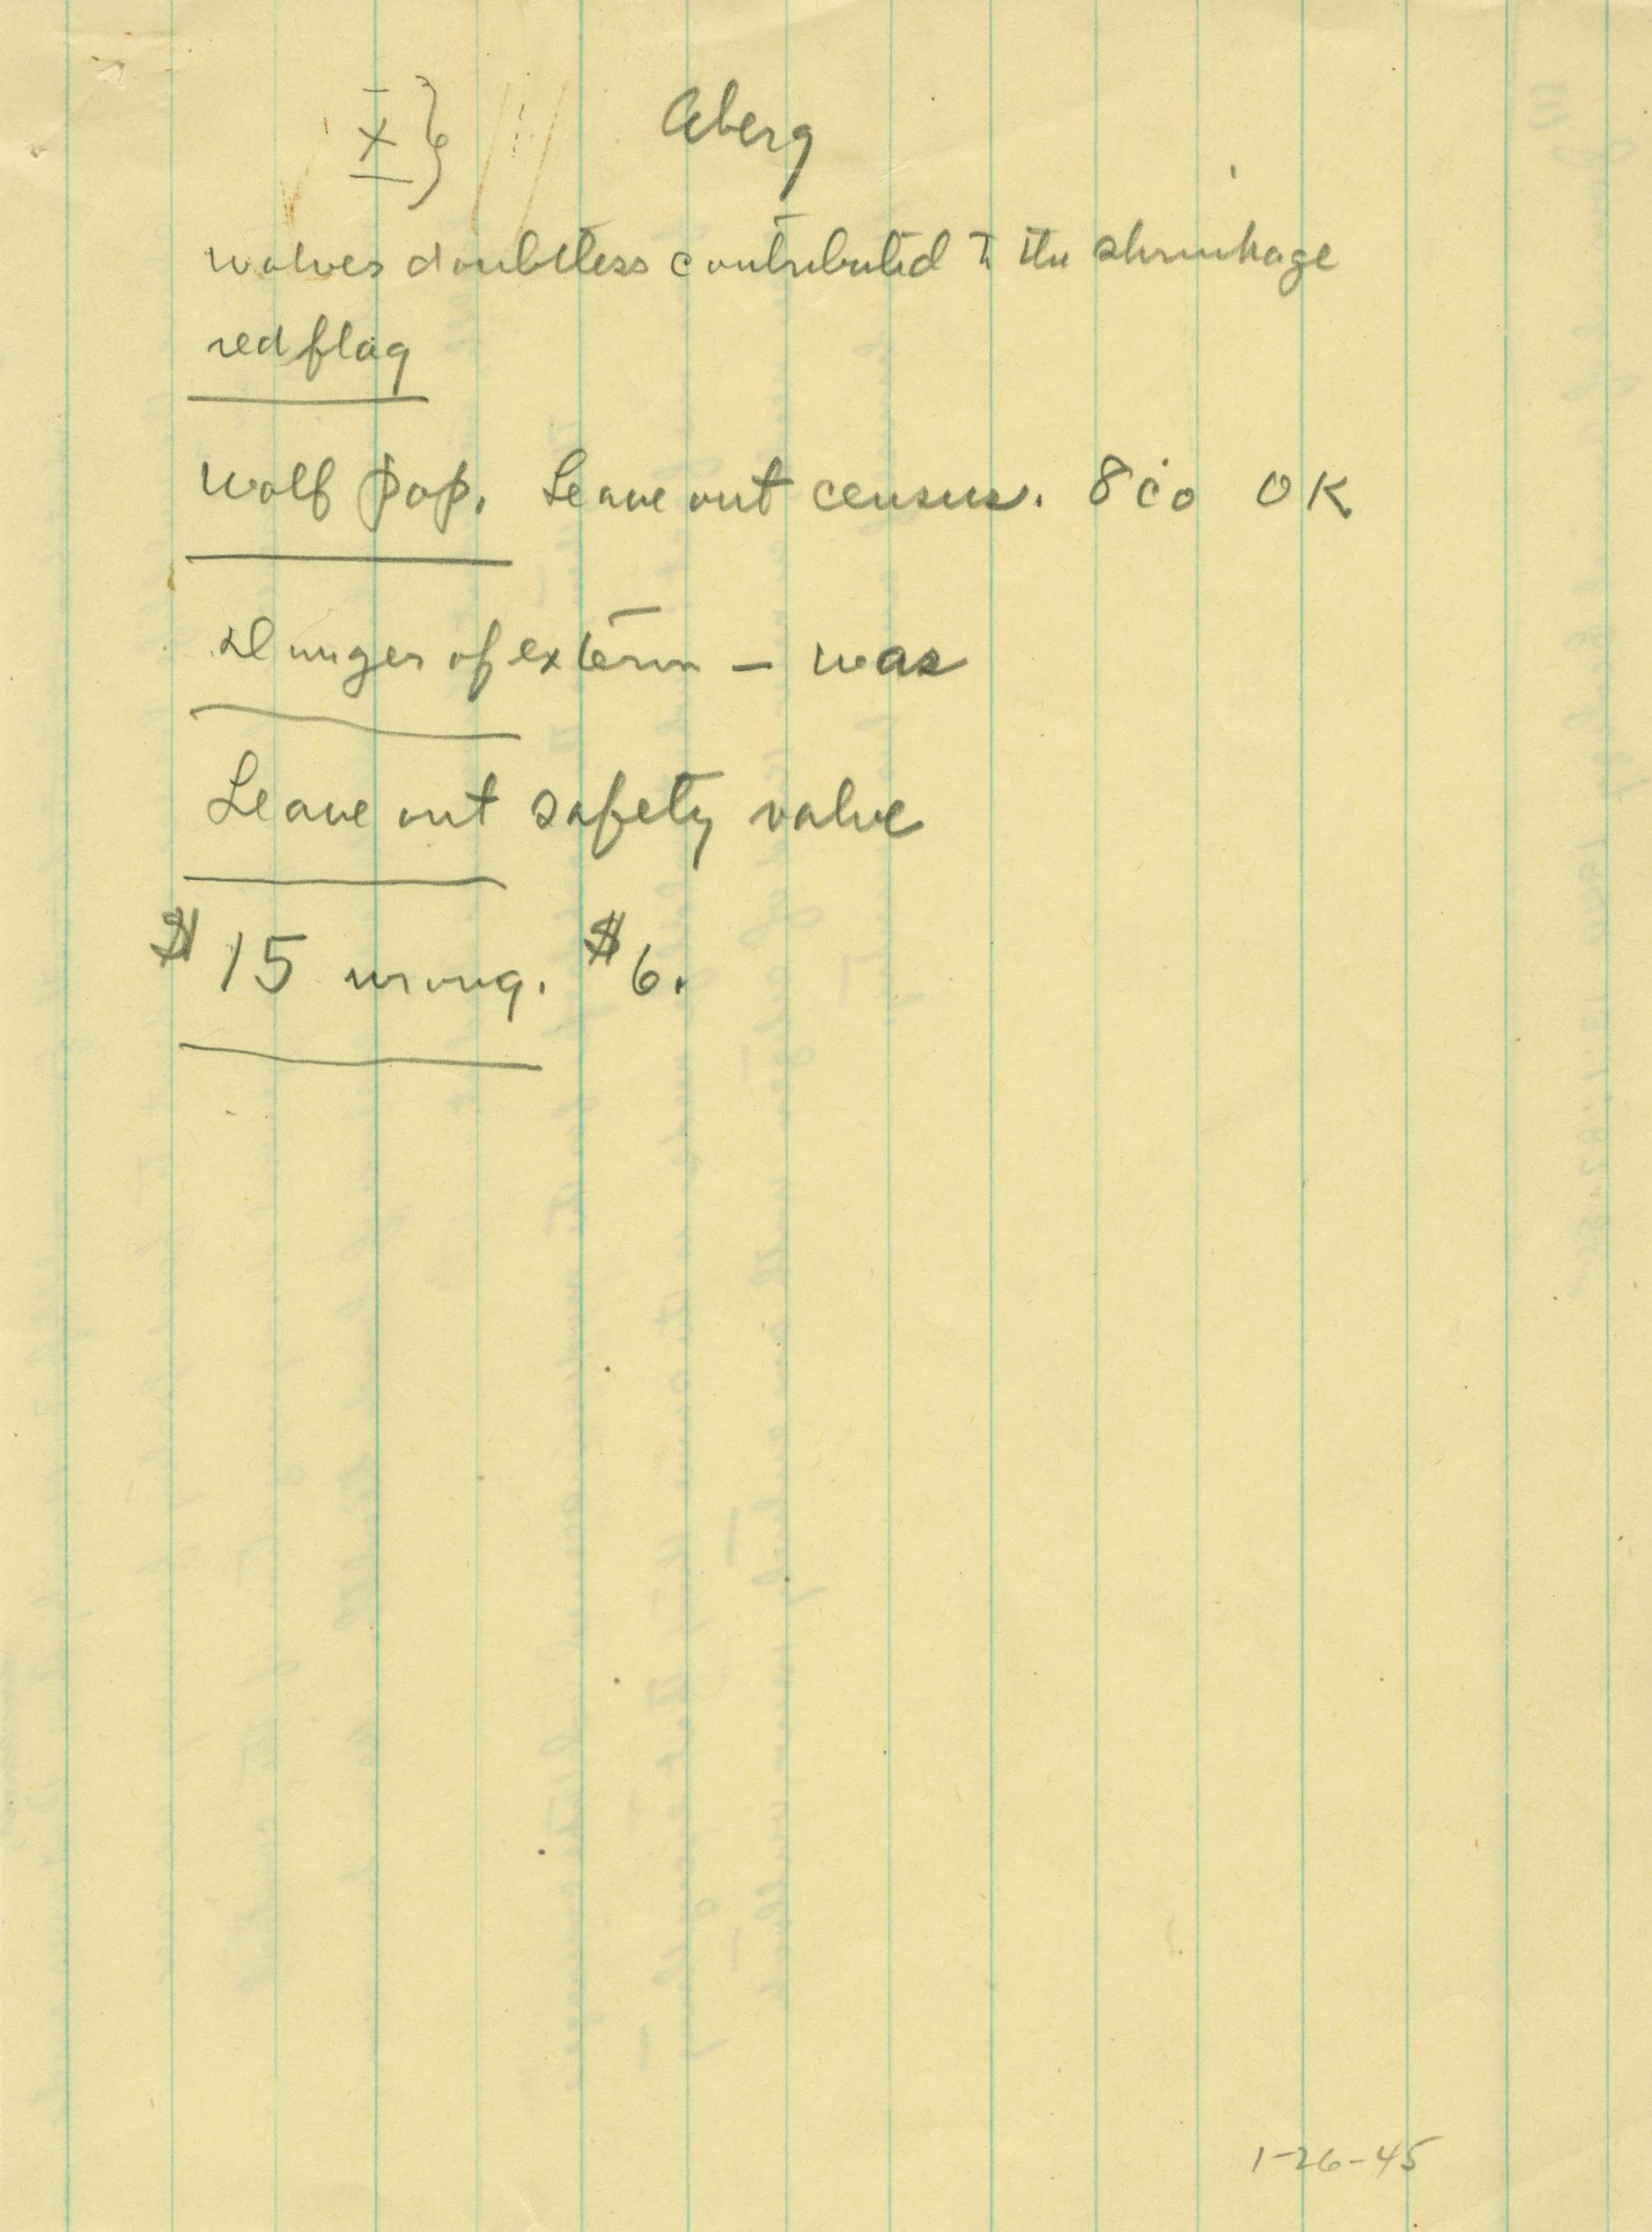 X } Aberg
wolves doubtless contributed to the shrinkage
red flag
Wolf pop. Leave out census. 8 co OK
Danger of exterm – was
Leave out safety valve
$15 wrong. $6.
1-26-45